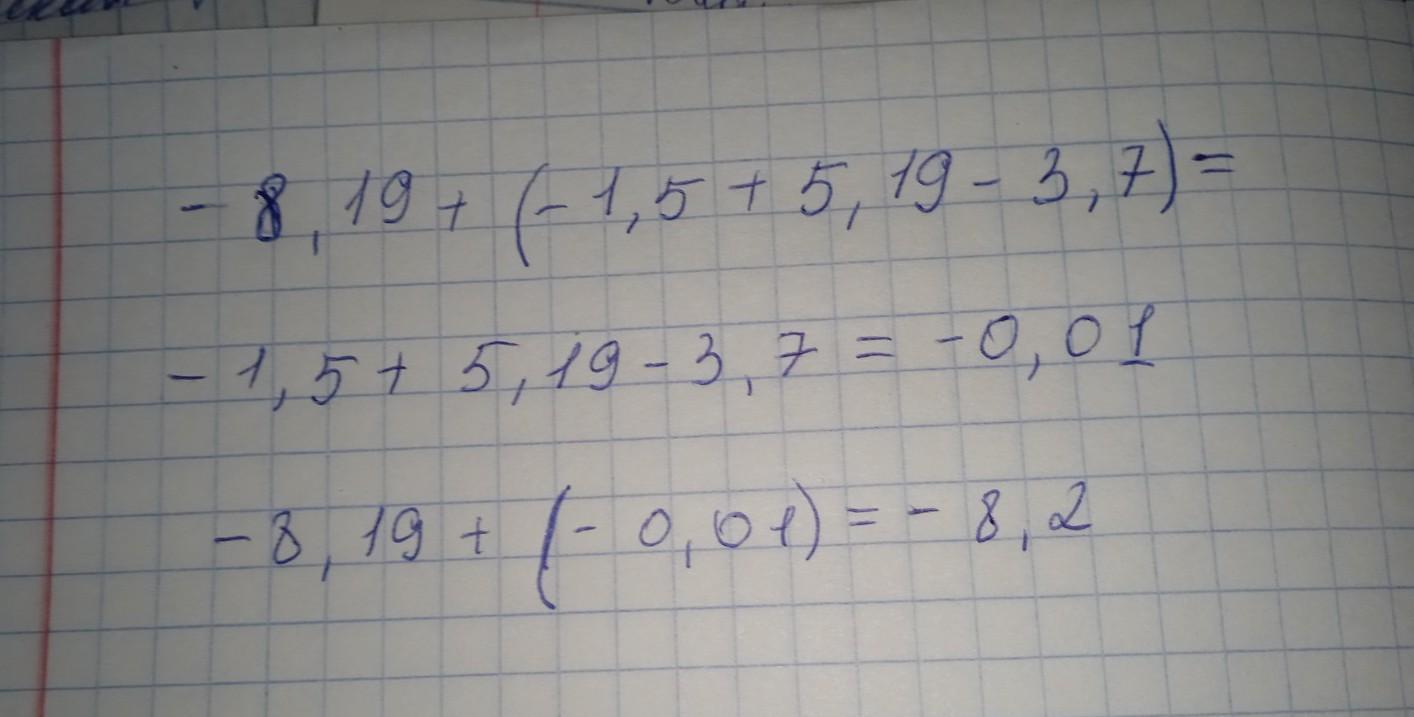 - 8,19 + (- 1,5 + 5,19 - 3,7) =
- 1,5 + 5,19 - 3,7 = - 0,01
- 8,19 + (- 0,01) = - 8,2